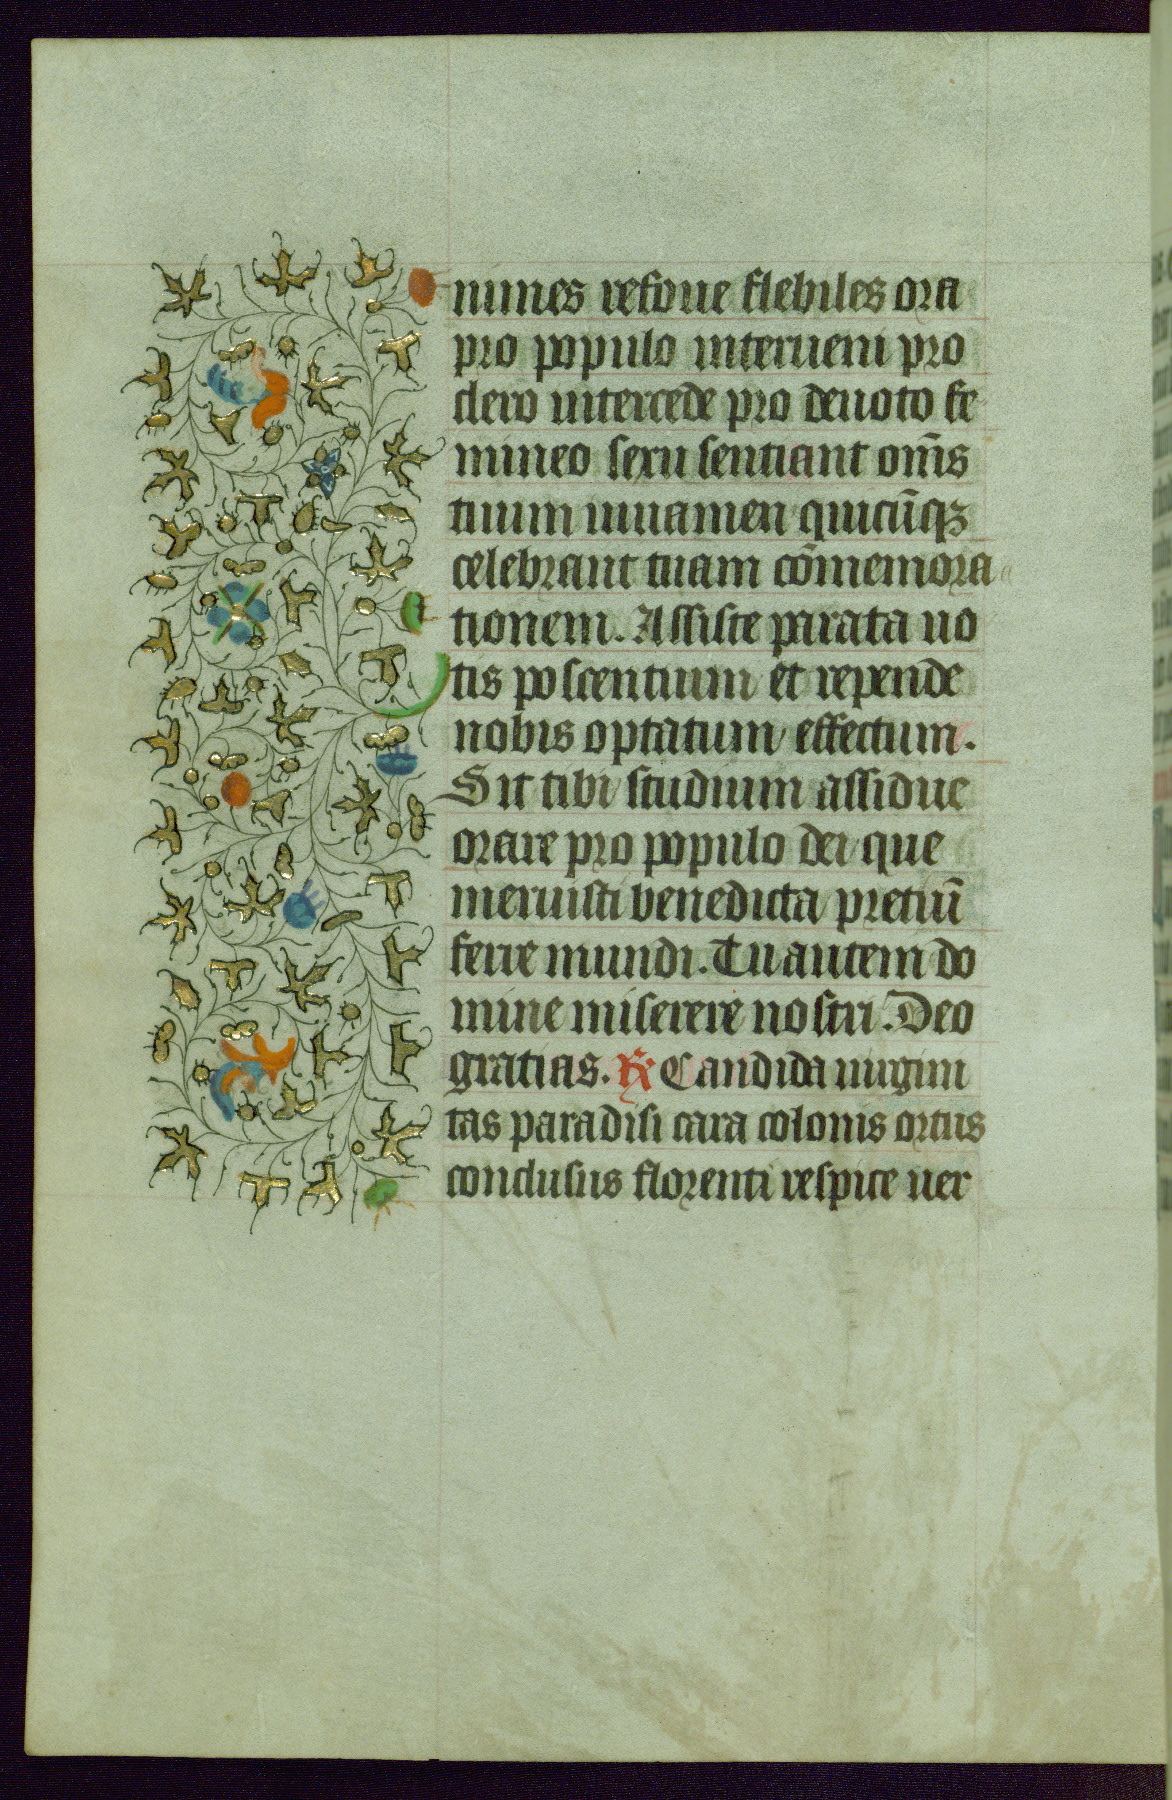 nimes refoue flebiles ora
pro populo interueni pro
clero intercede pro deuoto fe
mineo sexu sentiant om̄s
tuum iuuamen quicūqꝫ
celebrant tuam cōmemora
tionem. Assiste parata uo
tis poscentium et repende
nobis optatum effectum.
Sit tibi studium assidue
orare pro populo dei que
meruisti benedicta pretiū
ferre mundi. Tu autem do
mine miserere nostri. Deo
gratias. ℟ Candida uirgini
tas paradisi cara colonis ortus
conclusus florenti respice uer